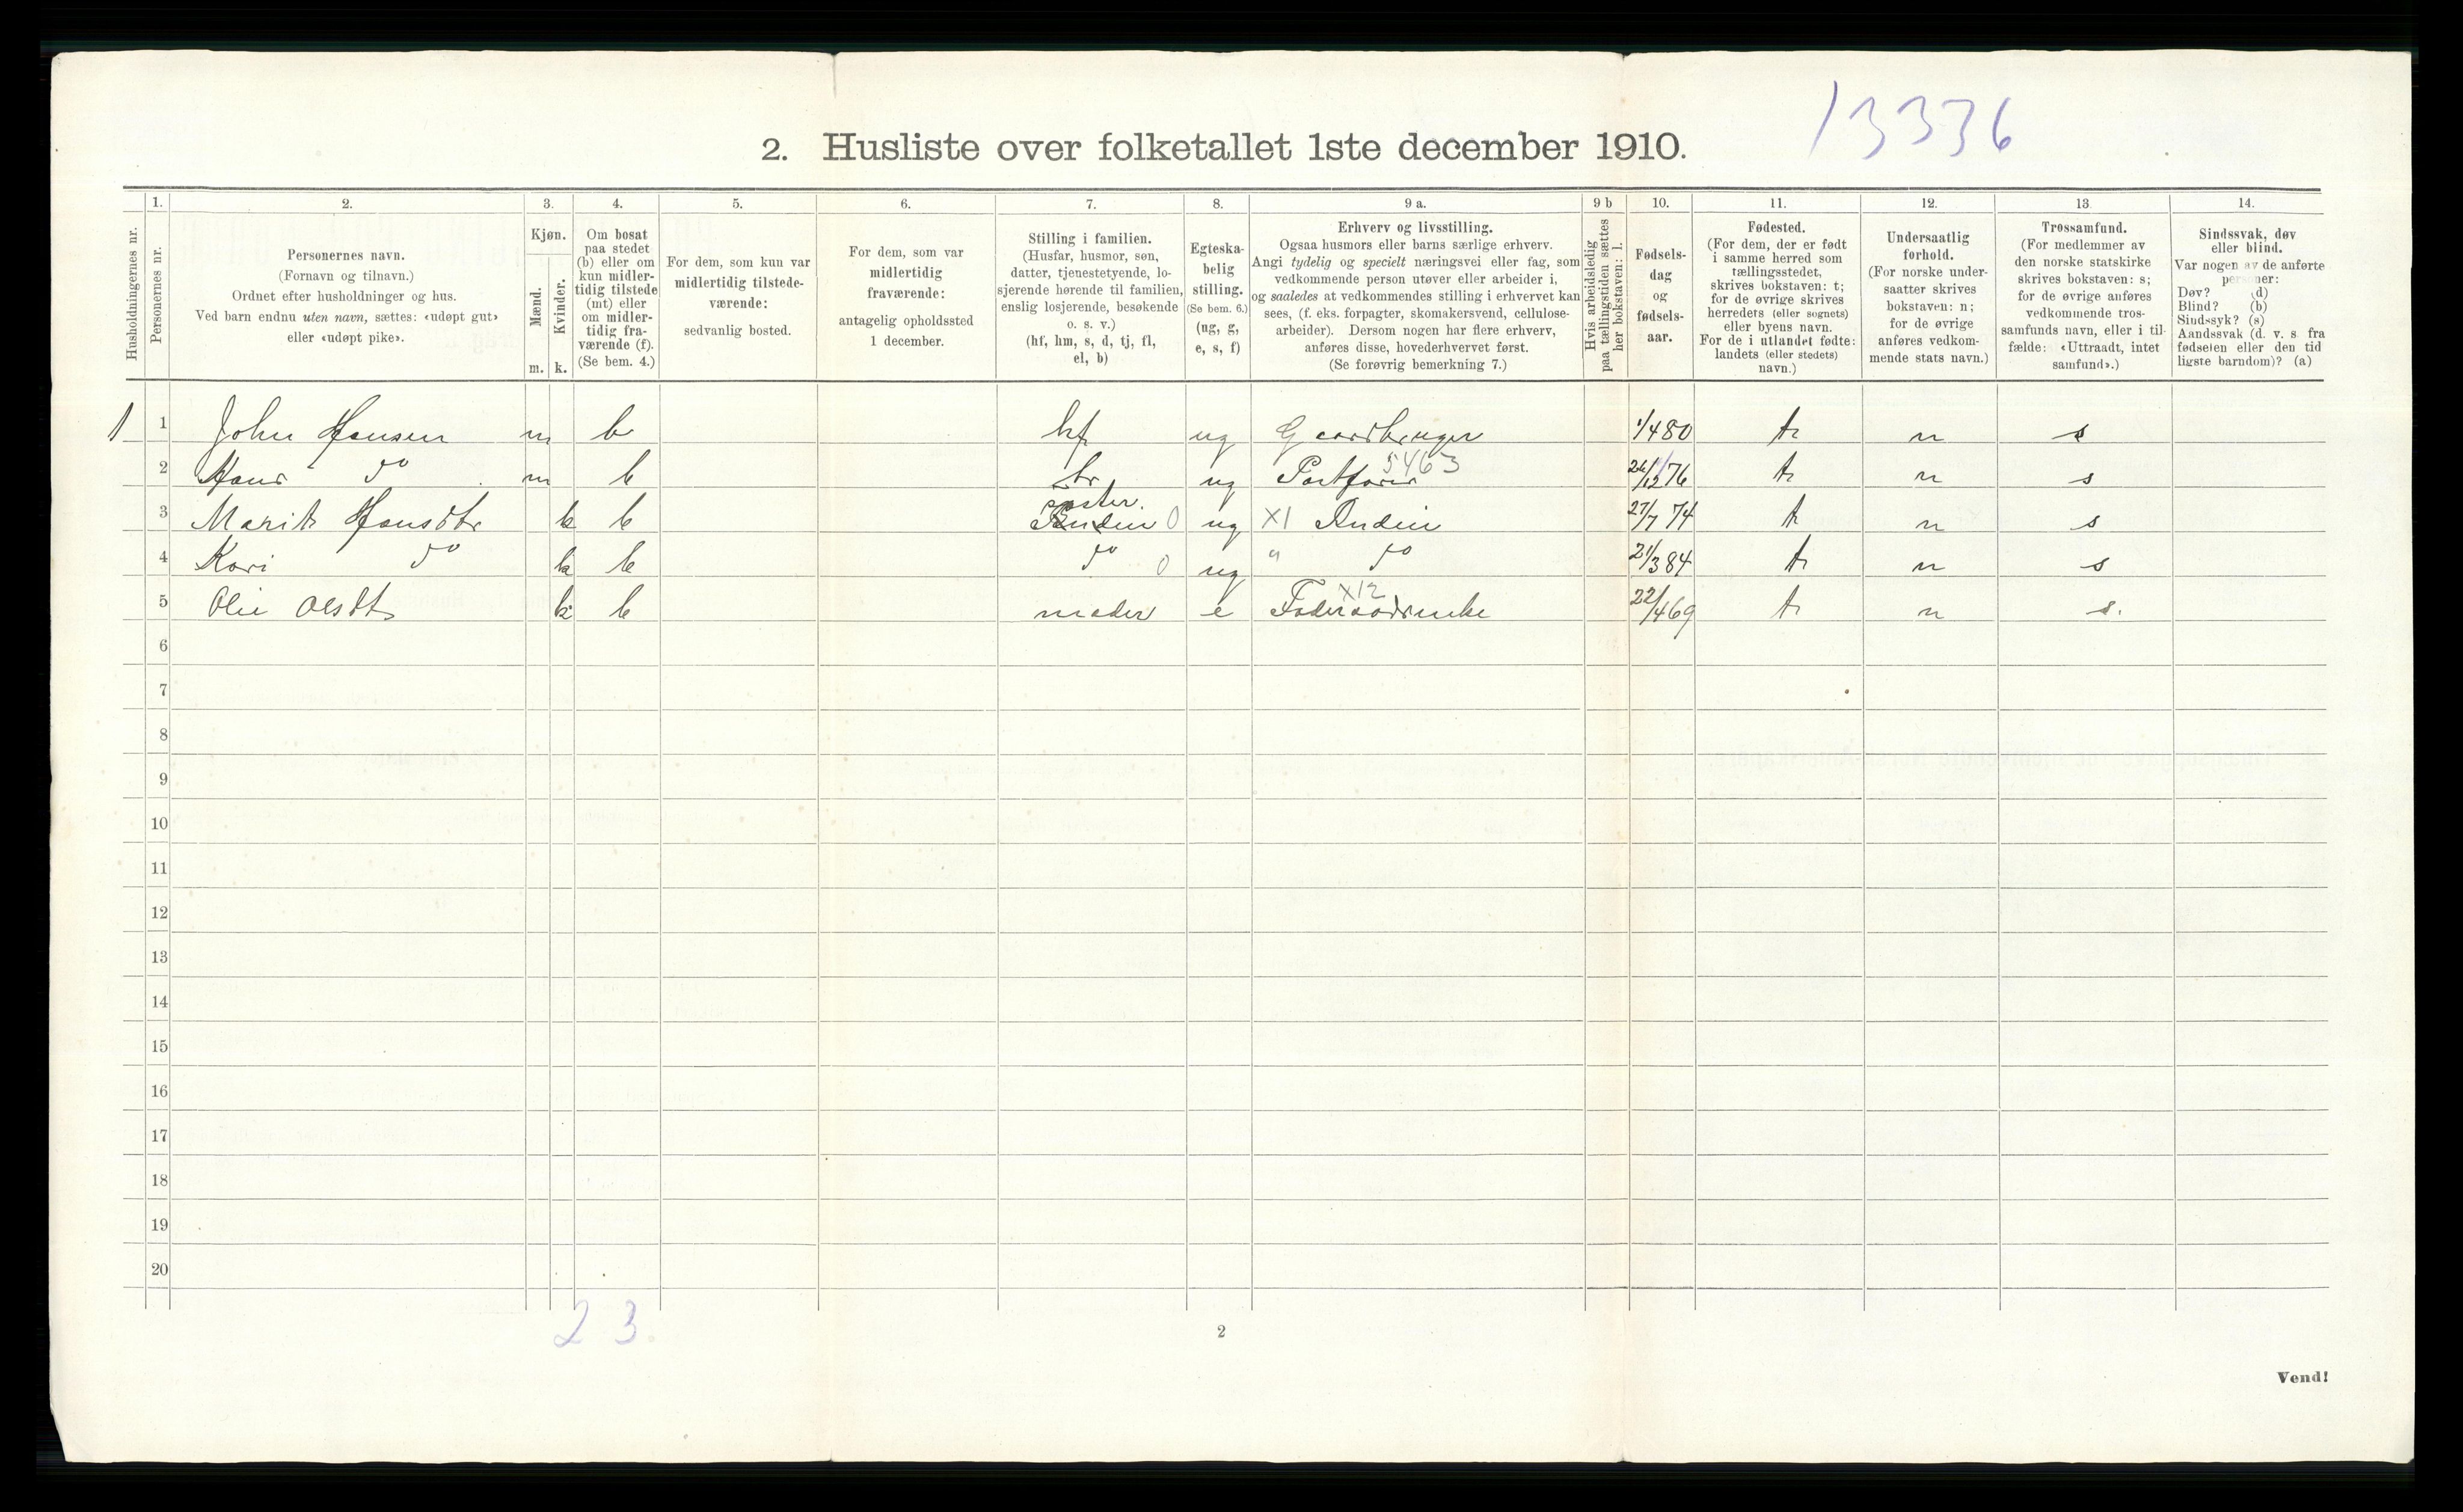 13336
2. Husliste over folketallet 1ste december 1910.
Husholdningernes nr.
1.
Personernes nr.
2.
Personernes navn.
(Fornavn og tilnavn.)
Ordnet efter husholdninger og hus.
Ved barn endnu uten navn, sættes: «udøpt gut»
eller «udøpt pike».
3.
Kjøn.
Mænd.
Kvinder.
m. k.
4.
Om bosat
paa stedet
(b) eller om
kun midler-
tidig tilstede
(mt) eller
om midler-
tidig fra-
værende (f).
(Se bem. 4.)
5.
For dem, som kun var
midlertidig tilstede-
værende:
sedvanlig bosted.
6.
For dem, som var
midlertidig
fraværende:
antagelig opholdssted
1 december.
7.
Stilling i familien.
(Husfar, husmor, søn,
datter, tjenestetyende, lo-
sjerende hørende til familien,
enslig losjerende, besøkende
o. s. v.)
(hf, hm, s, d, tj, fl,
el, b)
8.
Egteska-
belig
stilling.
(Se bem. 6.)
(ug, g,
e, s, f)
9 a.
Erhverv og livsstilling.
Ogsaa husmors eller barns særlige erhverv.
Angi tydelig og specielt næringsvei eller fag, som
vedkommende person utøver eller arbeider i,
og saaledes at vedkommendes stilling i erhvervet kan
sees, (f. eks. forpagter, skomakersvend, cellulose-
arbeider). Dersom nogen har flere erhverv,
anføres disse, hovederhvervet først.
(Se forøvrig bemerkning 7.)
9 b
Hvis arbeidsledig
paa tællingstiden sættes
her bokstaven: l.
10.
Fødsels-
dag
og
fødsels-
aar.
11.
Fødested.
(For dem, der er født
i samme herred som
tællingsstedet,
skrives bokstaven: t;
for de øvrige skrives
herredets (eller sognets)
eller byens navn.
For de i utlandet fødte:
landets (eller stedets)
navn.)
12.
Undersaatlig
forhold.
(For norske under-
saatter skrives
bokstaven: n;
for de øvrige
anføres vedkom-
mende stats navn.)
13.
Trossamfund.
(For medlemmer av
den norske statskirke
skrives bokstaven: s;
for de øvrige anføres
vedkommende tros-
samfunds navn, eller i til-
fælde: «Uttraadt, intet
samfund».)
14.
Sindssvak, døv
eller blind.
Var nogen av de anførte
personer:
Døv? (d)
Blind? (b)
Sindssyk? (s)
Aandssvak (d. v. s. fra
fødselen eller den tid
ligste barndom)? (a)
1 1 John Hansen m b hf ug Gaardbruger 1/4 80 t n s
2 Hans do m b br ug Postfører 5463 26/12 76 t n s
3 Marit Hansdtr k b søster 0 ug X1 27/7 74 t n s
4 Kari do k b do 0 ug " do 21/3 84 t n s
5 Olsdtr k b moder e Foderaadsenke X12 22/4 69 t n s.
6
7
8
9
10
11
12
13
14
15
16
17
18
19
20
2 3
2
Vend!